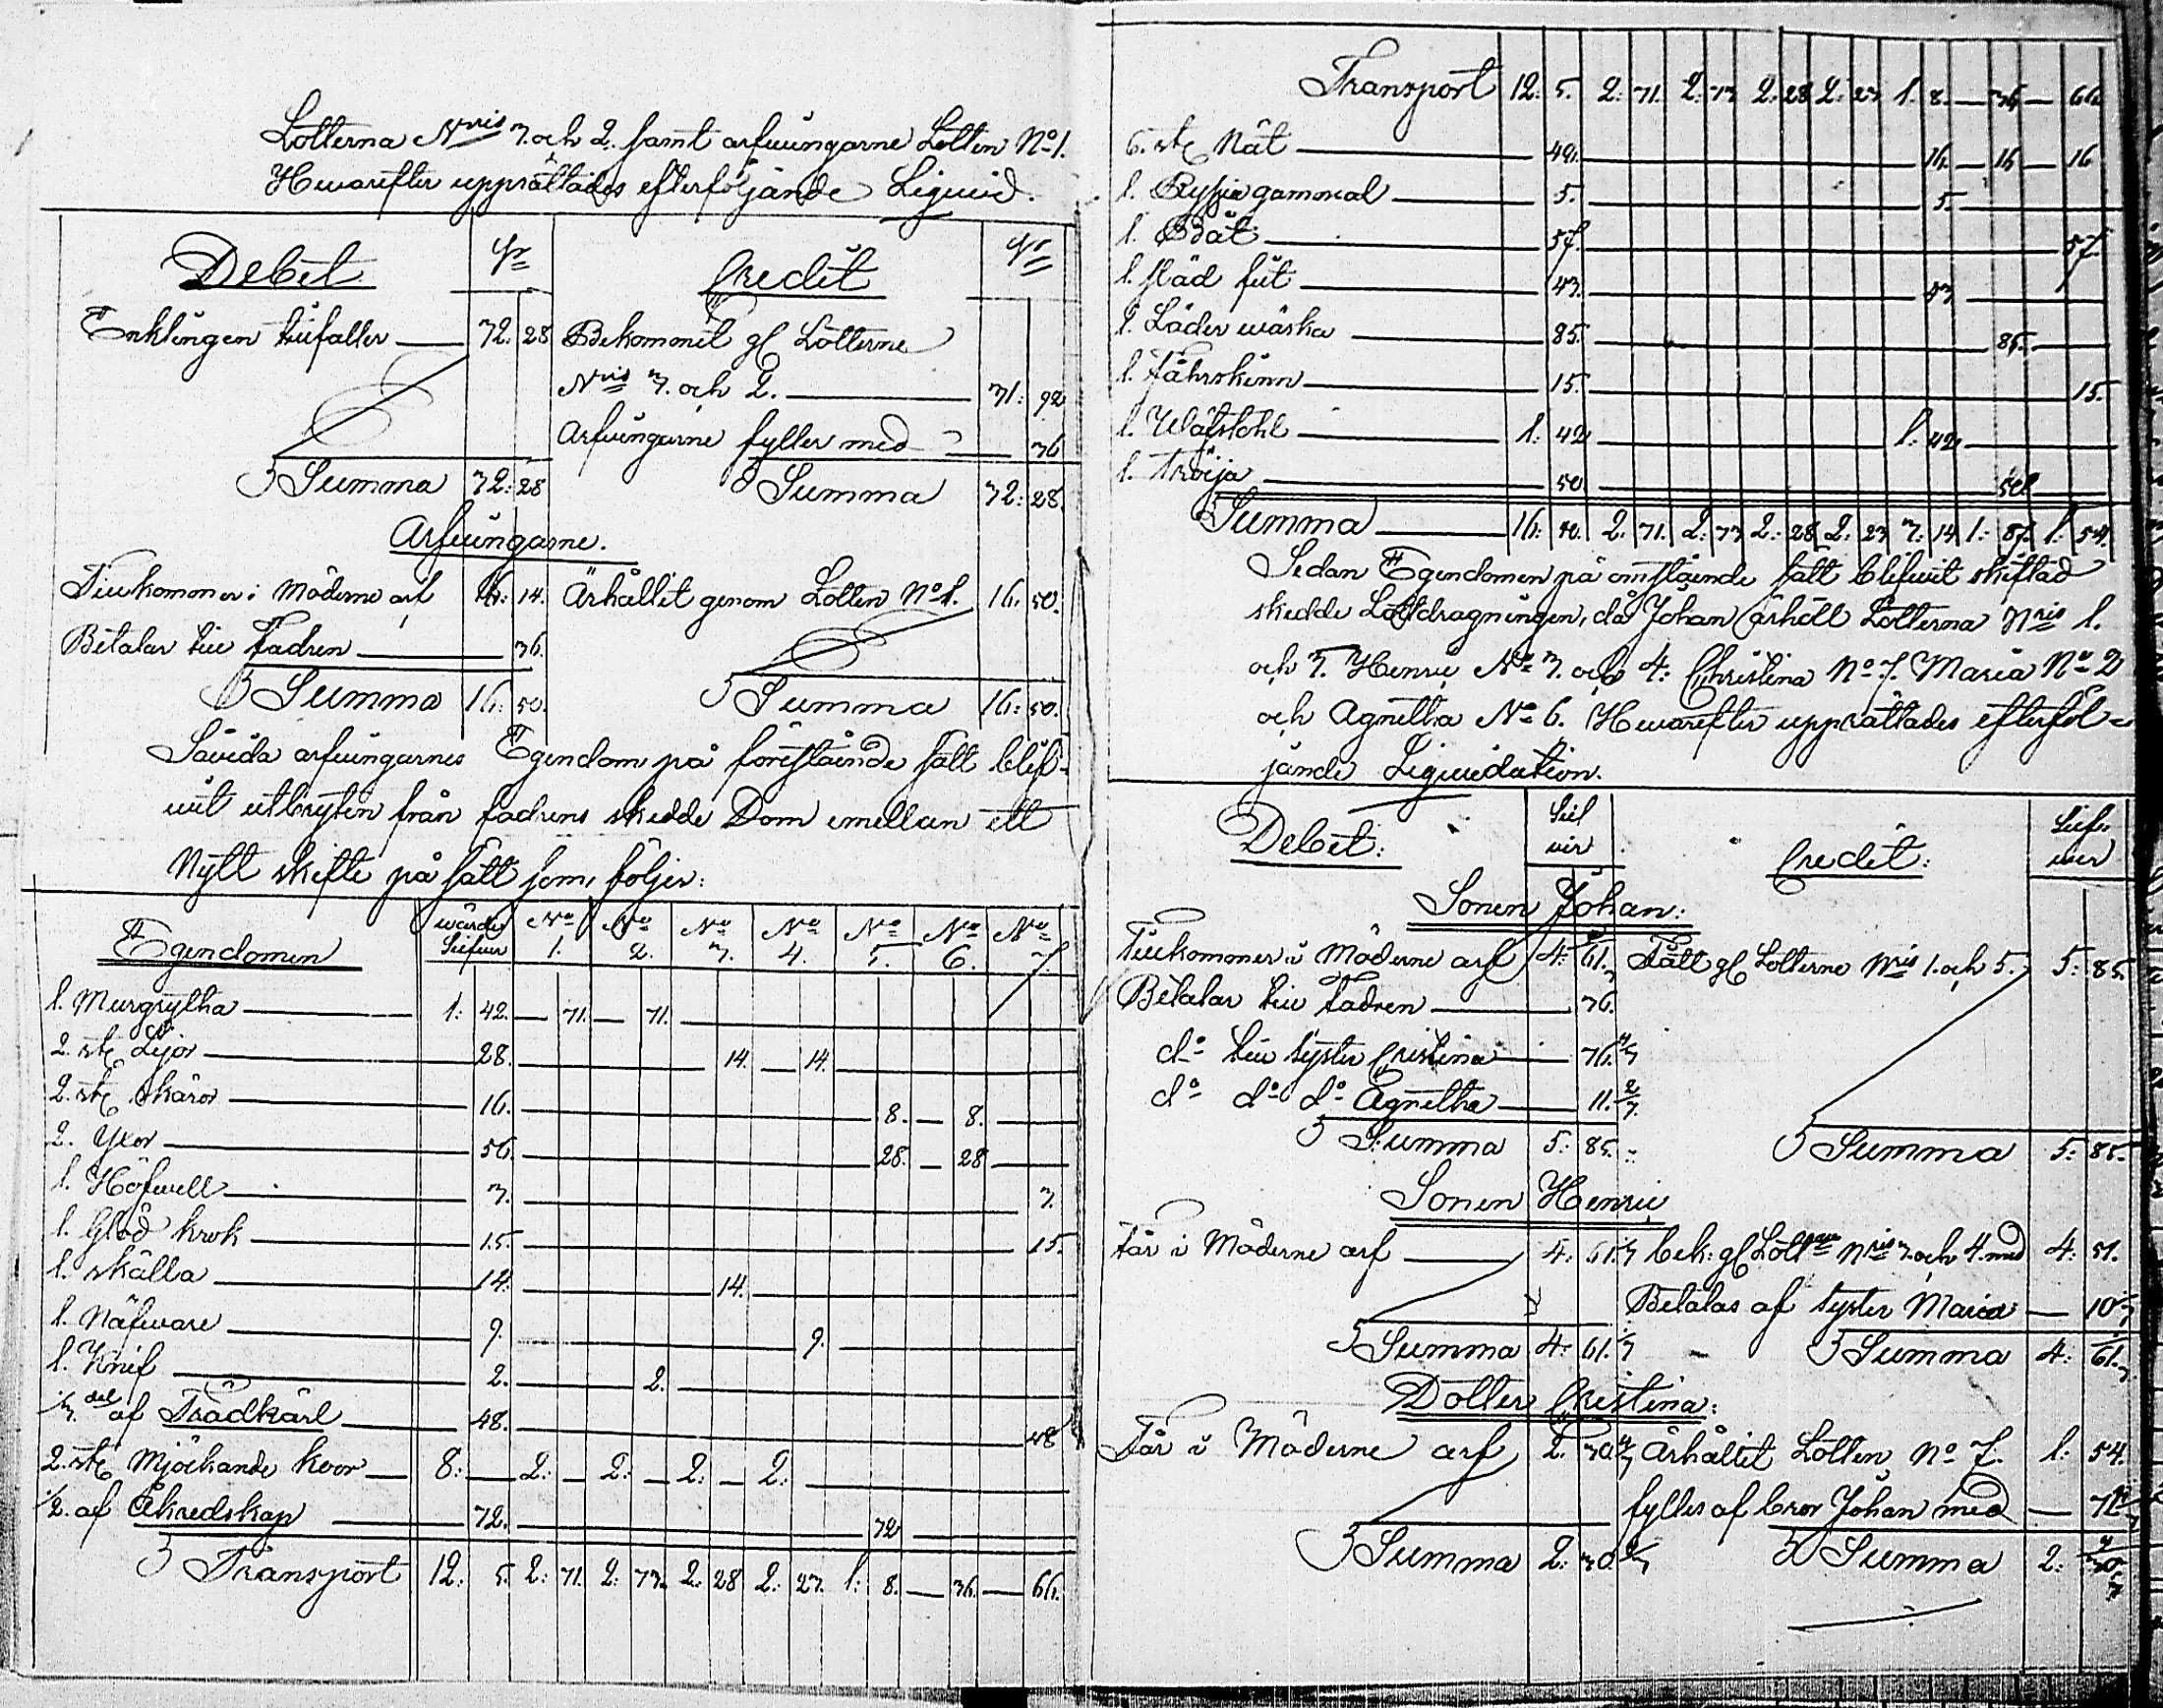 Lotterna Nris 3. och 2. samt arfwingarne Lotten No 1.
Hwarefter upprättades efterföljande Liqwid.
Debet Credit
Enklingen tillfaller 32. 28 Bekommit gl Lotterne
Nris 3. och 2. 31: 92
Arfwingarne fyller med 36
Summa 32: 28 Summa 32: 28.
Arfwingarne.
Tillkommer i Möderne arf 16: 14. Ärhållit genom Lotten No 1. 16. 50.
Betalar till Fadren 36.
Summa 16: 50. Summa 16: 50.
Såvida arfwingarnes Egendom på föreståënde sätt blif-
wit utbryten från fadrens skedde Dom emellan ett
Nytt skifte på sätt som följer:
Egendomen wärde Silfwer No 1. No 2. No 3. No 4. No 5. No 6. No 7.
1. Murgrytha 1: 42. 71. 71.
2. stc Lijor 28. 14. 14.
2. stc skäror 16. 8. 8.
2. Yxor 56. 28. 28
1. Höfwell 3. 3.
1. Glöd krok 15. 15.
1. skälla 14. 14.
1. Näfware 9. 9.
1. Knif 2. 2.
1/3 del af Trädkärl 48. 48
2. stc Mjölkande koor 8: 2: 2: 2: 2:
1/2. af Åkredskap 72. 72
Transport 12: 5. 2: 71. 2: 73. 2: 28 2: 23. 1: 8. 36. 66.
Transport 12: 5. 2: 71. 2: 73 2: 28 2: 23 1. 8. 36 66
6. stc Nät 48. 16. 16 16
1. Ryssja gammal 5. 5.
1. Båt 57. 57.
1. släd fit 43. 43
1. Läder wäska 85. 85.
1. Fåhrskinn 15. 15.
1. Wäfstohl 1. 42 1. 42
1. tröija 50 50
Summa 16: 50. 2. 71. 2: 73 2: 28 2: 23 3. 14 1: 87. 1. 54.
Sedan Egendomen på omstående sätt blifwit skiftad
skedde Lottdragningen, då Johan ärhöll Lotterna Nris 1.
och 5. Henric No 3. och 4: Christina No 7. Maria No 2
och Agnetha No 6. Hwarefter upprättades efterföl=
jande Liquidation.
Debet: Silf wer Credit: Silf. wer
Sonen Johan:
Tillkommer i Möderne arf 4: 61. Fått gl Lotterne Nris 1. och 5. 5: 85.
Betalar till Fadren 36.
do till syster Cristina 76. 2/7
do do do Agnetha 11. 2/7.
Summa 5: 85. Summa 5: 85.
Sonen Henric
Får i Möderne arf 4: 61. bek: gl Nris 3. och 4. med 4: 51.
Betalas af syster Maria 10
Summa 4: 61. Summa 4: 61.
Dotter Cristina:
Får i Möderne arf 2. 30. Ärhållit Lotten No 7. 1: 54.
fylles af bror Johan med
Summa 2: 30 Summa 2: 30